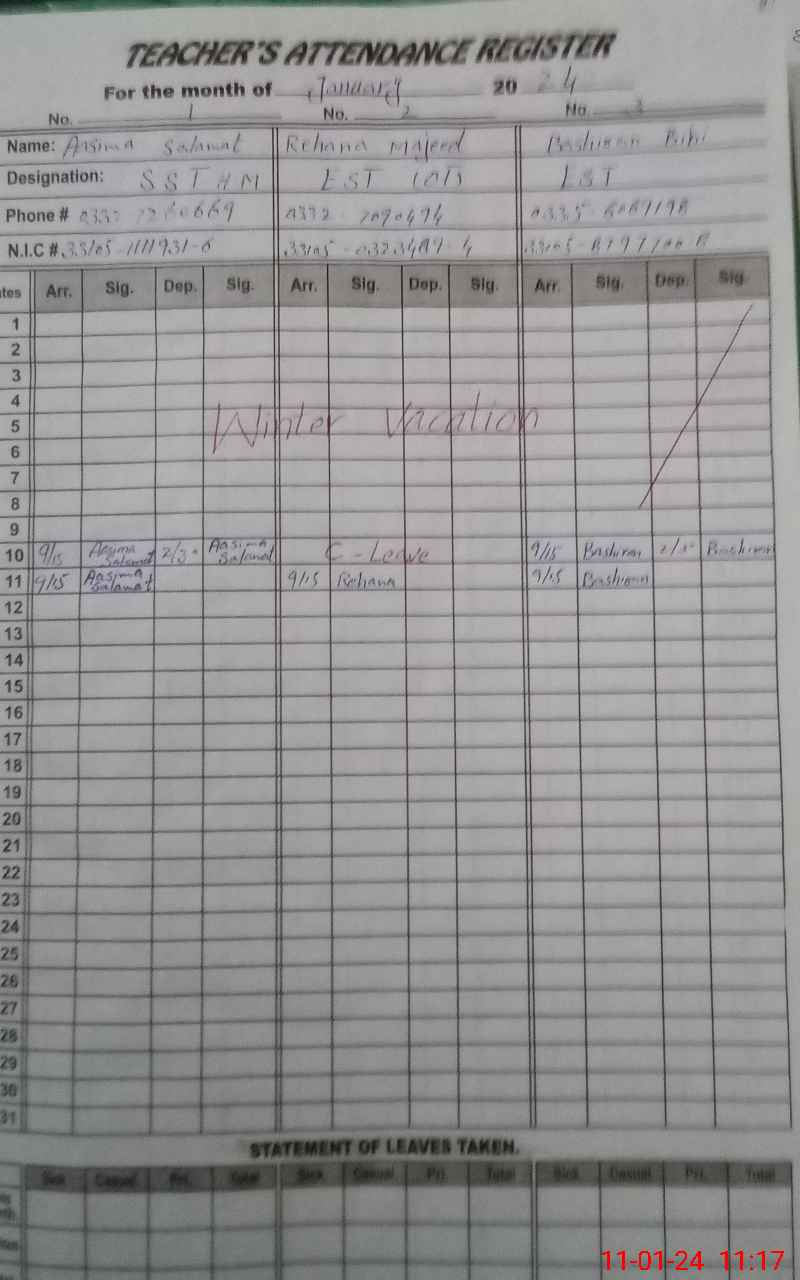 TEACHER'S ATTENDANCE REGISTER
For the month of January 20 24
No. 1 No. 2 No. 3
Name: Aasima Salamat Rehana Majeed Bashiran Bibi
Designation: SST HM EST EST
Phone #
N.I.C #
Arr. Sig. Dep. Sig. Arr. Sig. Dep. Sig. Arr. Sig. Dep. Sig.
1
2
3
4
Winter Vacation
5
6
7
8
9
10 9/15 Aasima Salamat 2/30 Aasima Salamat C-Leave 9/15 Bashiran 2/30 Bashiran
11 9/15 Aasima Salamat 9/15 Rehana 9/15 Bashiran
12
13
14
15
16
17
18
19
20
21
22
23
24
25
26
27
28
29
30
31
STATEMENT OF LEAVES TAKEN.
Sick Casual Pri. Total Sick Casual Pri. Total Sick Casual Pri. Total
11-01-24 11:17